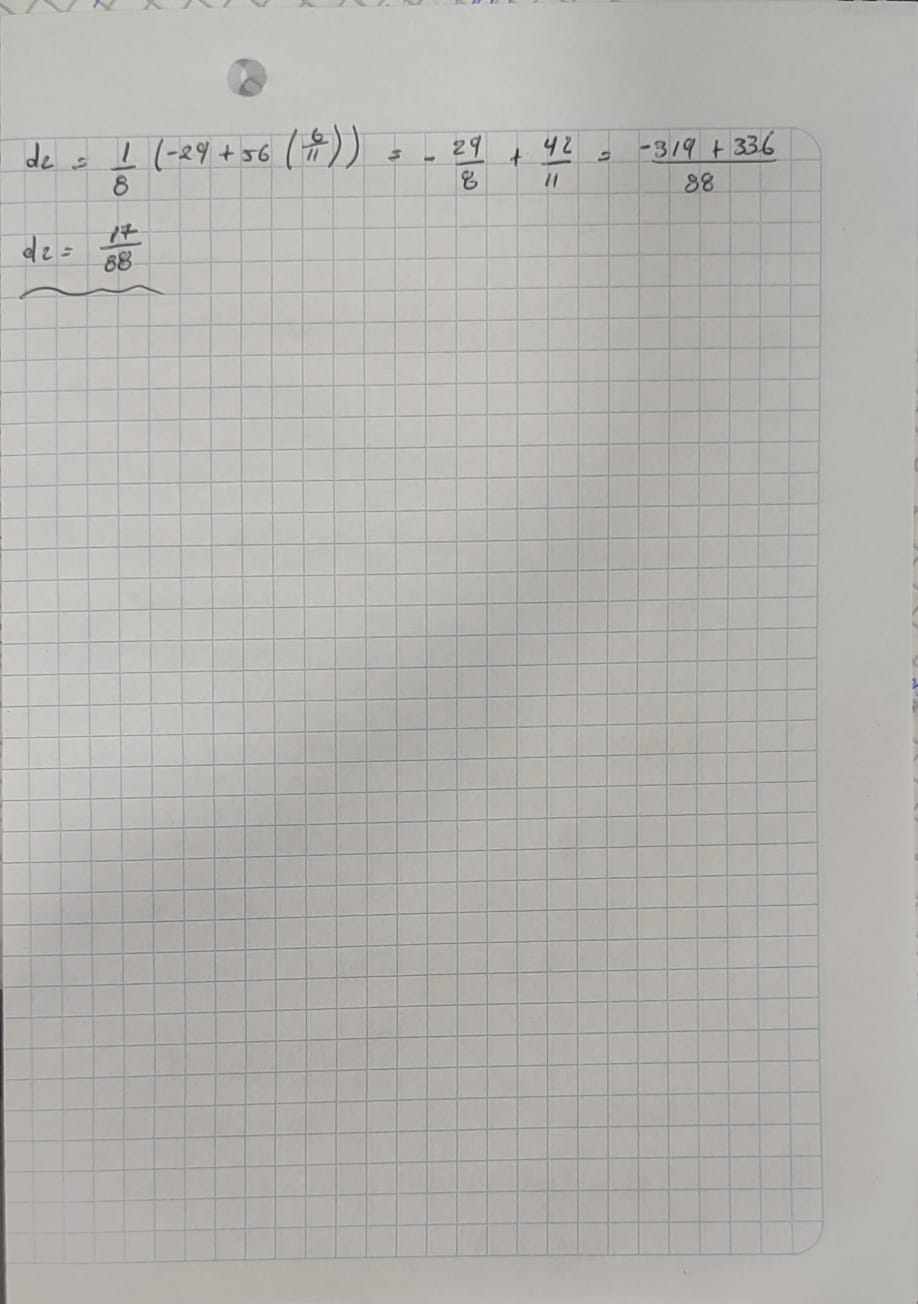 d2 = 1/8 (-29 + 56 (6/11)) = - 29/8 + 42/11 = (-319 + 336)/88
d2 = 17/88